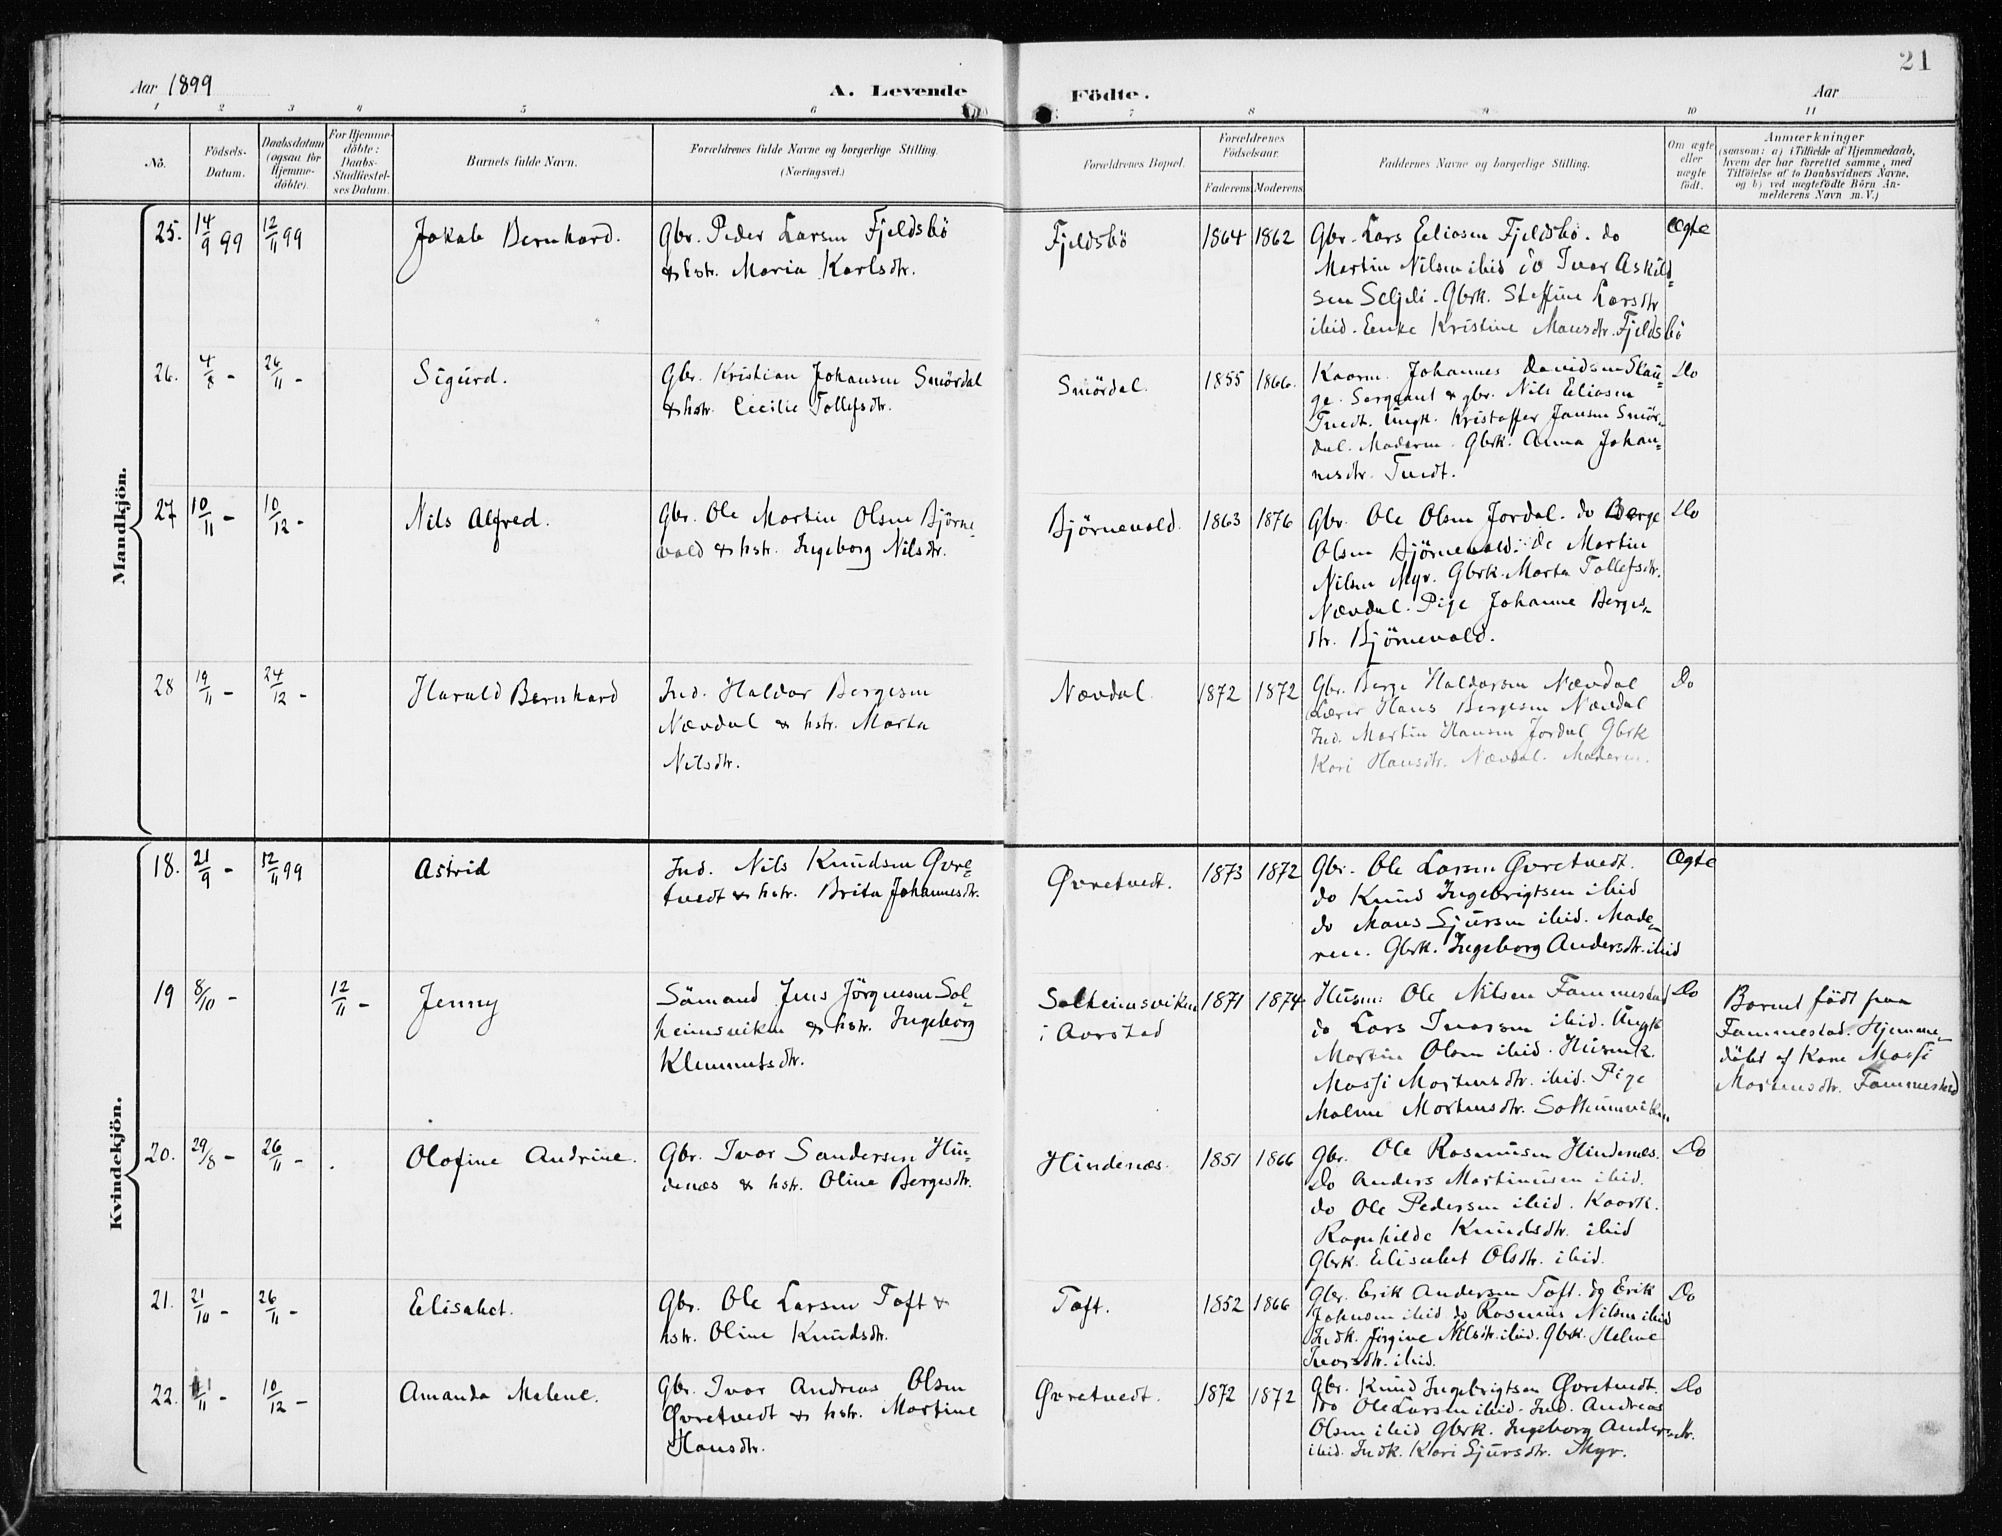 21
Aar 1899
A. Levende
Födte.
Aar
1 2 3 4 5 6 7 8 9 10 11
Nö.
Födsels-
Datum.
Daabsdatum
(ogsaa for
Hjemme-
döbte).
For Hjemme-
döbte:
Daabs-
Stadfæstel-
ses Datum.
Barnets fulde Navn.
Forældrenes fulde Navne og borgerlige Stilling.
(Næringsvei.)
Forældrenes Bopæl.
Forældrenes
Födselsaar.
Faderens Moderens
Faddernes Navne og borgerlige Stilling.
Om ægte
eller
uægte
födt.
Anmærkninger
(saasom: a) i Tilfælde af Hjemmedaab,
hvem der har forrettet samme, med
Tilföielse af to Daabsvidners Navne,
og b) ved uægtefödte Börn An-
melderens Navn m.V.)
Mandkjön.
25. 14/9 99 12/11 99
Jakob Bernhard.
Gbr. Peder Larsen Fjeldsbö
& hstr. Maria Karlsdtr.
Fjeldsbö
1864 1862
Gbr. Lars Eliasen Fjeldsbö. do
Martin Nilsen ibid do Ivar Askild-
sen Seljeli. Gbrk. Steffine Larsdtr
ibid. Enke Kristine Mansdtr. Fjeldsbö
Ægte
26. 4/8 - 26/11 -
Sigurd.
Gbr. Kristian Johansen Smördal
& hstr. Cecilie Tollefsdtr.
Smördal.
1855 1866.
Kaarm. Johannes Davidsen Skau-
ge. Sergeant & gbr. Nils Eliasen
Tvedt. Ungk. Kristoffer Jansen Smör-
dal. Moderen. Gbrk. Anna Johan-
nesdtr. Tvedt.
Do
27 10/11 - 10/12 -
Nils Alfred.
Gbr. Ole Martin Olsen Björne-
vold & hstr. Ingeborg Nilsdtr.
Björnevold.
1863 1876
Gbr. Ole Olsen Jordal. do Berge
Olsen Björnevold. do Martin
Nilsen Myr. Gbrk. Marta Tollefsdtr.
Nævdal. Pige Johanne Berges-
dtr. Björnevold.
Do
28 19/11 - 24/12 -
Harald Bernhard
Ind. Haldor Bergesen
Nævdal & hstr. Marta
Nilsdtr.
Nævdal.
1872 1872
Gbr. Berge Haldorsen Nævdal
Lærer Hans Bergesen Nævdal
Ind. Martin Hansen Jordal Gbrk
Kari Hansdtr. Nævdal. Moderen.
Do
Kvindekjön.
18. 21/9 - 12/11 99
Astrid
Ind. Nils Knudsen Øvre-
tvedt & hstr. Brita Johannesdtr.
Øvretvedt.
1873 1872
Gbr. Ole Larsen Øvretvedt.
do Knud Ingebrigtsen ibid
do Mons Sjursen ibid. Mode-
ren. Gbrk. Ingeborg Andersdtr. ibid
Ægte
19 8/10 - 12/11 -
Jenny
Sömand Jens Jörgensen Sol-
heimsviken & hstr. Ingeborg
Klemmetsdtr.
Solheimsviken
i Aarstad
1871 1874
Husm: Ole Nilsen Fammestad
do Lars Ivarsen ibid. Ungk
Martin Olsen ibid. Husmk.
Massi Mortensdtr. ibid. Pige
Malene Mortensdtr. Solheimsviken
Do
Barnet födt paa
Fammestad. Hjemme-
döbt af Kone Massi
Mortensdtr. Fammestad
20. 29/8 - 26/11 -
Olofine Andrine.
Gbr. Ivar Sandersen Hin-
denæs & hstr. Oline Bergesdtr.
Hindenæs.
1851 1866
Gbr. Ole Rasmusen Hindenæs.
Do Anders Martinusen ibid.
do Ole Pedersen ibid. Kaark.
Ragnhilde Knudsdtr. ibid
Gbrk. Elisabet Olsdtr. ibid.
Do
21. 21/10 - 26/11 -
Elisabet.
Gbr. Ole Larsen Toft &
hstr. Oline Knudsdtr.
Toft.
1852 1866
Gbr. Erik Andersen Toft. do Erik
Johnsen ibid do Rasmus Nilsen ibid
Indk. Jörgine Nilsdtr. ibid. Gbrk. Helene
Ivarsdtr. ibid.
Do
22. 11 - 10/12 -
Amanda Malene.
Gbr. Ivar Andreas Olsen
Øvretvedt & hstr. Martine
Hansdtr.
Øvretvedt.
1872 1872
Gbr. Knud Ingebrigtsen Øvretvedt.
do Ole Larsen ibid. Ind. Andreas
Olsen ibid Gbrk. Ingeborg Andersdtr.
ibid. Indk. Kari Sjursdtr. Myr.
Do